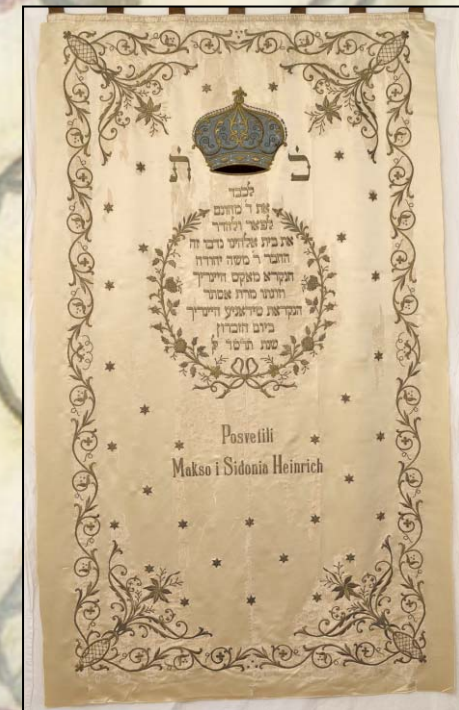 כ ת
לכבד
את ד' מהונם
לפאר ולהדר
את בית אלהינו נדבו זה
החבר ר' משה יהודה
הנקרא מאקס היינריך
וזוגתו מרת אסתר
הנקראת סידאניע היינריך
ביום הזכרון
שנת תרסד ל
Posvetili
Makso i Sidonia Heinrich